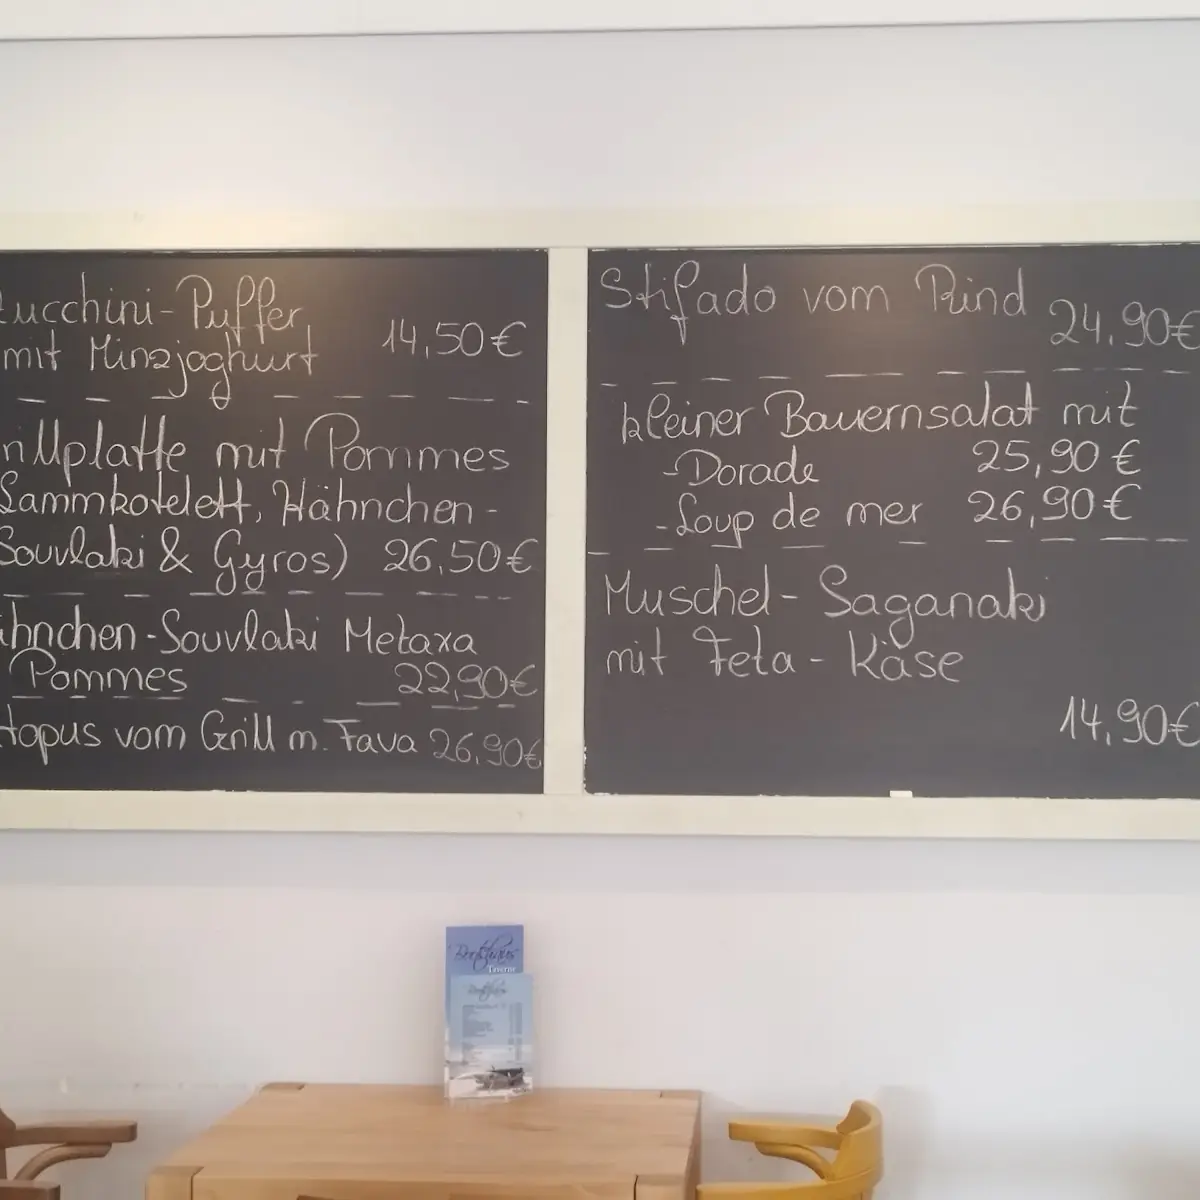 Zucchini-Puffer
mit Minzjoghurt 14,50€
rillplatte mit Pommes
Lammkotelett, Hähnchen-
Souvlaki & Gyros) 26,50€
ähnchen-Souvlaki Metaxa
Pommes 22,90€
topus vom Grill m. Fava 26,90€
Stifado vom Rind 24,90€
kleiner Bauernsalat mit
-Dorade 25,90€
-Loup de mer 26,90€
Muschel-Saganaki
mit Feta-Käse
14,90€
Bootshaus
Taverne
Bootshaus